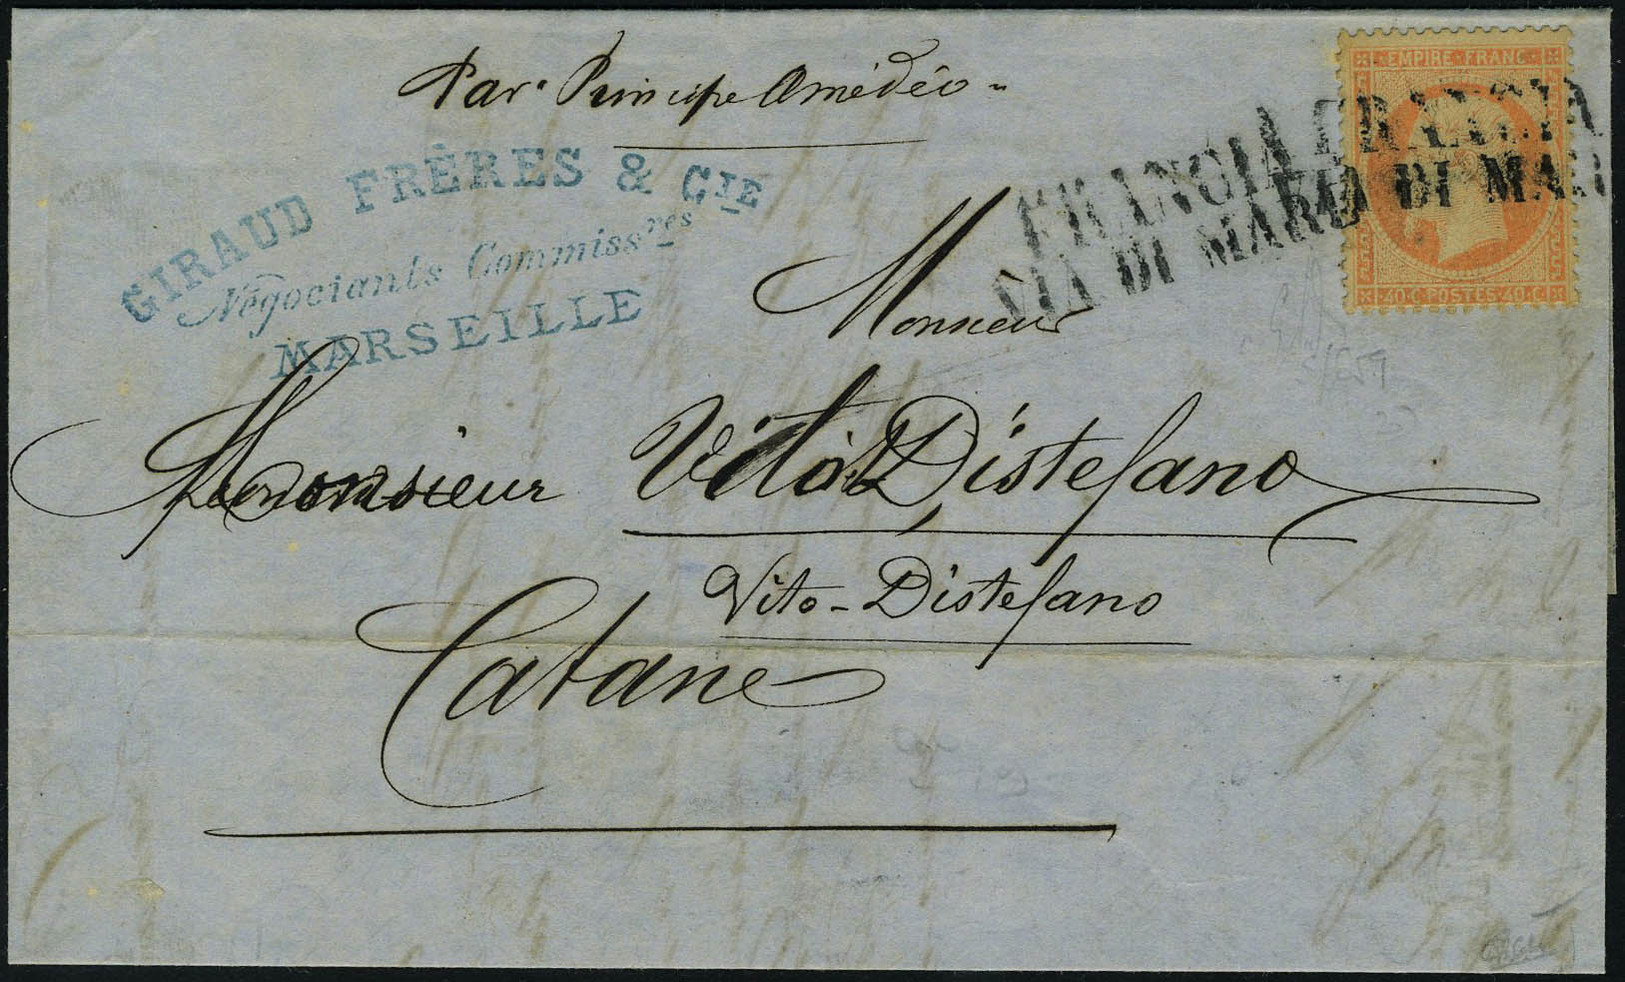 Par Principe Amédéo
GIRAUD FRÈRES & CIE
Négociants Commissres
MARSEILLE
EMPIRE FRANC
FRANCIA
VIA DI MARE
FRANCIA
VIA DI MAR
40 C POSTES 40 C
Monsieur
Monsieur Vito Distefano
Vito-Distefano
Catane